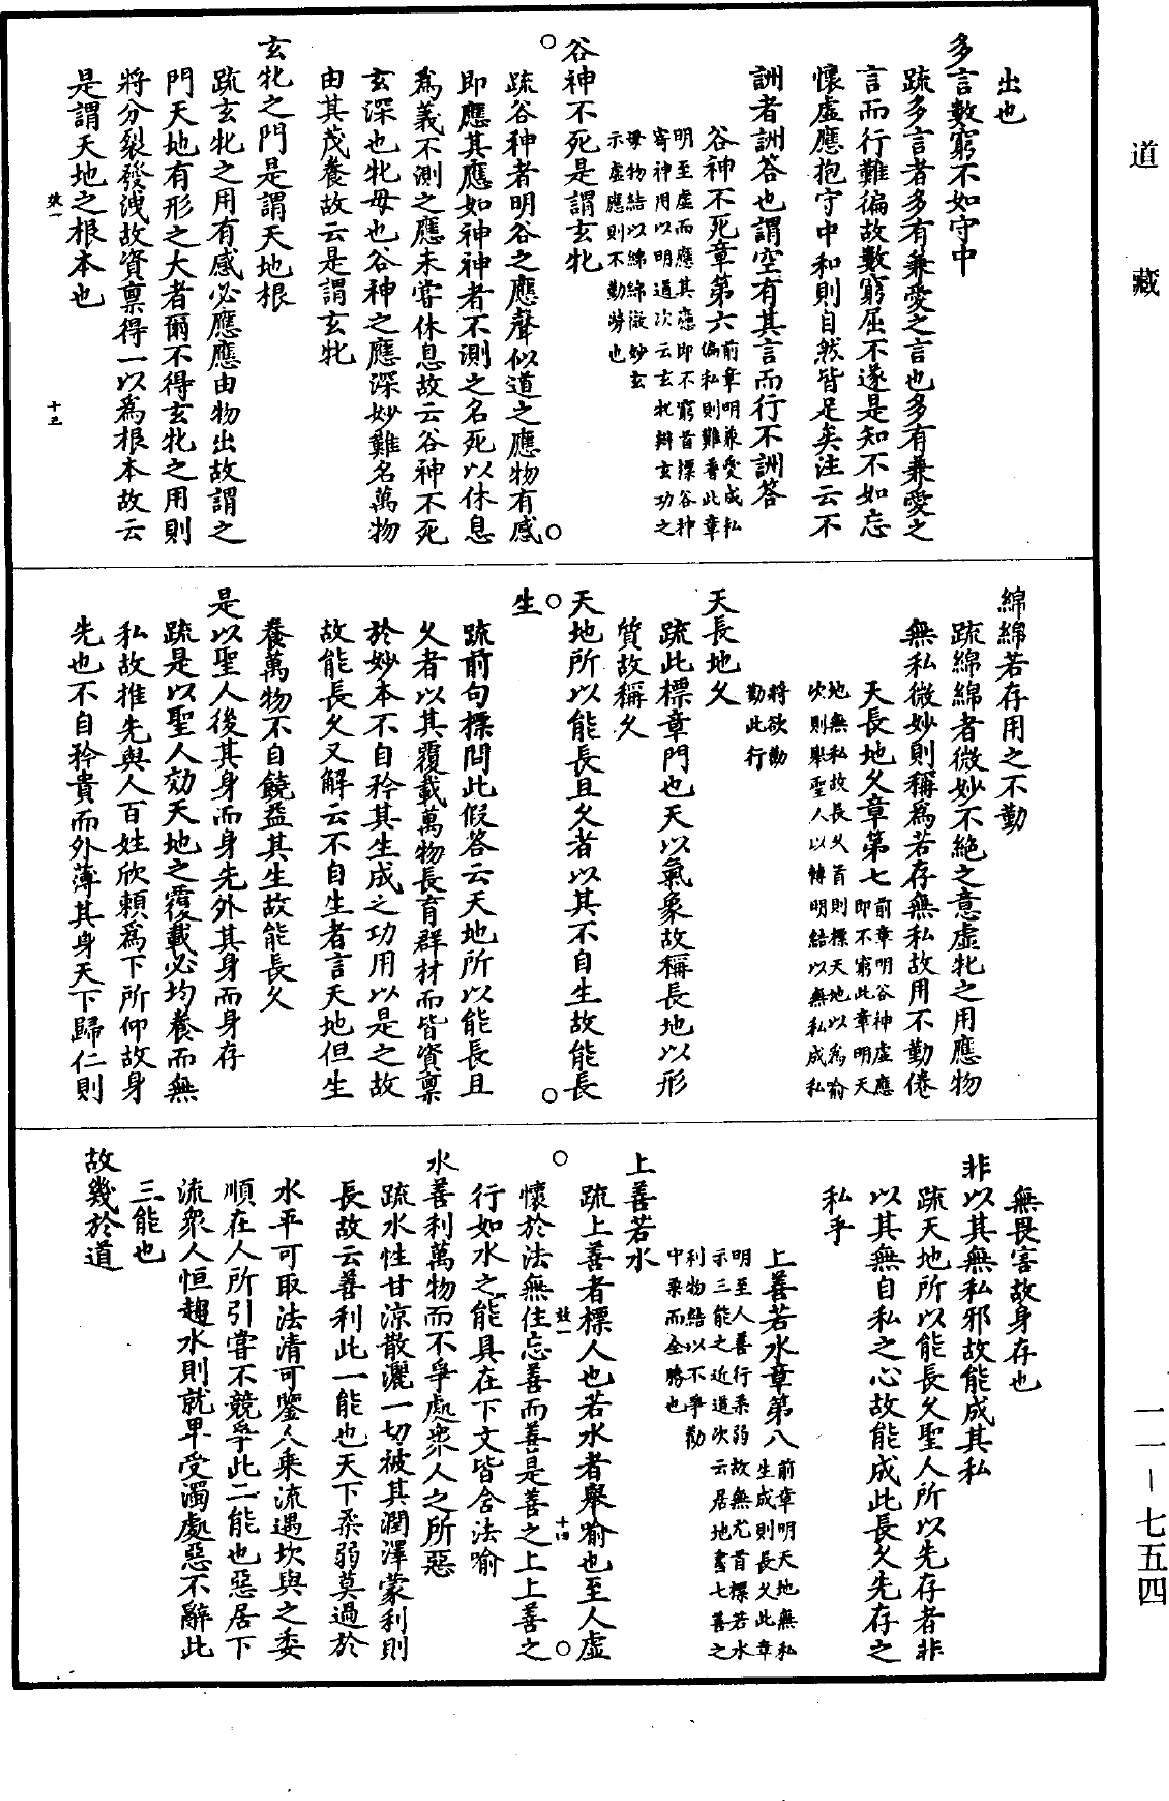 道藏
一一－七五四
出也
多言數窮不如守中
疏多言者多有兼愛之言也多有兼愛之
言而行難徧故數窮屈不遂是知不如忘
懷虛應抱守中和則自然皆足矣注云不
詶者詶答也謂空有其言而行不詶答
谷神不死章第六前章明兼愛成私
偏私則難普此章
明至虛而應其應即不窮首標谷神
寄神用以明道次云玄牝辯玄功之
母物結以綿綿微妙玄
示虛應則不勤勞也
谷神不死是謂玄牝
疏谷神者明谷之應聲似道之應物有感
即應其應如神神者不測之名死以休息
爲義不測之應未嘗休息故云谷神不死
玄深也牝母也谷神之應深妙難名萬物
由其茂養故云是謂玄牝
玄牝之門是謂天地根
疏玄牝之用有感必應應由物出故謂之
門天地有形之大者爾不得玄牝之用則
將分裂發洩故資稟得一以爲根本故云
是謂天地之根本也
十三
綿綿若存用之不勤
疏綿綿者微妙不絕之意虛牝之用應物
無私微妙則稱爲若存無私故用不勤倦
天長地久章第七前章明谷神虛應
即不窮此章明天
地無私故長久首則標天地以爲喻
次則舉聖人以轉明結以無私成私
將欲勸
勤此行
天長地久
疏此標章門也天以氣象故稱長地以形
質故稱久
天地所以能長且久者以其不自生故能長
生
疏前句標問此假答云天地所以能長且
久者以其覆載萬物長育群材而皆資稟
於妙本不自矜其生成之功用以是之故
故能長久又解云不自生者言天地但生
養萬物不自饒益其生故能長久
是以聖人後其身而身先外其身而身存
疏是以聖人効天地之覆載必均養而無
私故推先與人百姓欣賴爲下所仰故身
先也不自矜貴而外薄其身天下歸仁則
無畏害故身存也
非以其無私邪故能成其私
疏天地所以能長久聖人所以先存者非
以其無自私之心故能成此長久先存之
私乎
上善若水章第八前章明天地無私
生成則長久此章
明至人善行柔弱故無尤首標若水
示三能之近道次云居地書七善之
利物結以不爭勸
中柔而全勝也
上善若水
疏上善者標人也若水者舉喻也至人虛
懷於法無住忘善而善是善之上上善之
行如水之能具在下文皆含法喻
十四
水善利萬物而不爭處衆人之所惡
疏水性甘涼散灑一切被其潤澤蒙利則
長故云善利此一能也天下柔弱莫過於
水平可取法清可鑒人乘流遇坎與之委
順在人所引嘗不競爭此二能也惡居下
流衆人恒趣水則就卑受濁處惡不辭此
三能也
故幾於道